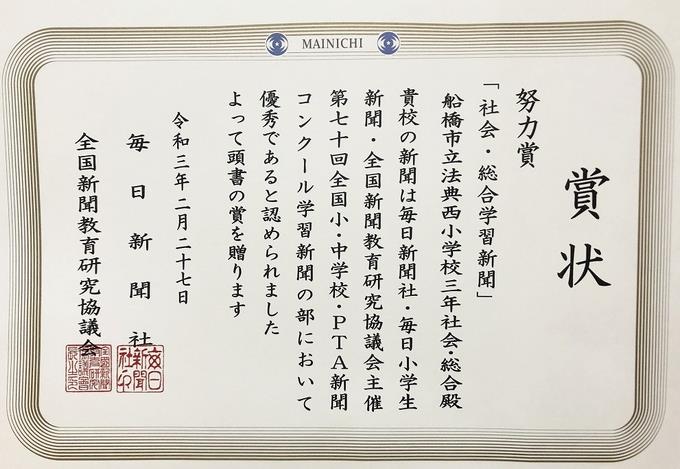 MAINICHI
賞状
努力賞
「社会・総合学習新聞」
船橋市立法典西小学校三年社会・総合殿
貴校の新聞は毎日新聞社・毎日小学生
新聞・全国新聞教育研究協議会主催
第七十回全国小・中学校・PTA新聞
コンクール学習新聞の部において
優秀であると認められました
よって頭書の賞を贈ります
令和三年二月二十七日
毎日新聞社
全国新聞教育研究協議会
毎日
新聞
社印